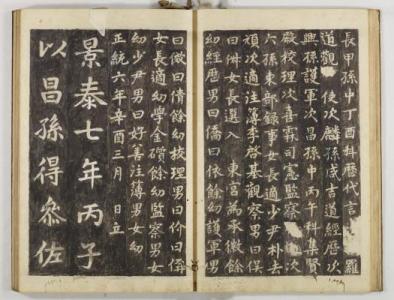 長甲孫中丁酉科歷代言 羅
道觀 使次麟孫咸吉道經歷次
興孫護軍次昌孫中丙午科集賢
殿校理次喜霖司憲監察 次
六孫東部錄事女長適少尹朴去
頑次適注簿李啓基觀察男曰俁
曰 女長選入 東宮為承徽餘
幼經歷男曰僑曰依餘幼護軍男
曰儆曰債餘幼校理男曰价曰倂
女長適幼學金礩餘幼監察男女
幼少尹男曰好善注簿男女幼
正統六年辛酉三月 日立
景泰七年丙子
以昌孫得參佐